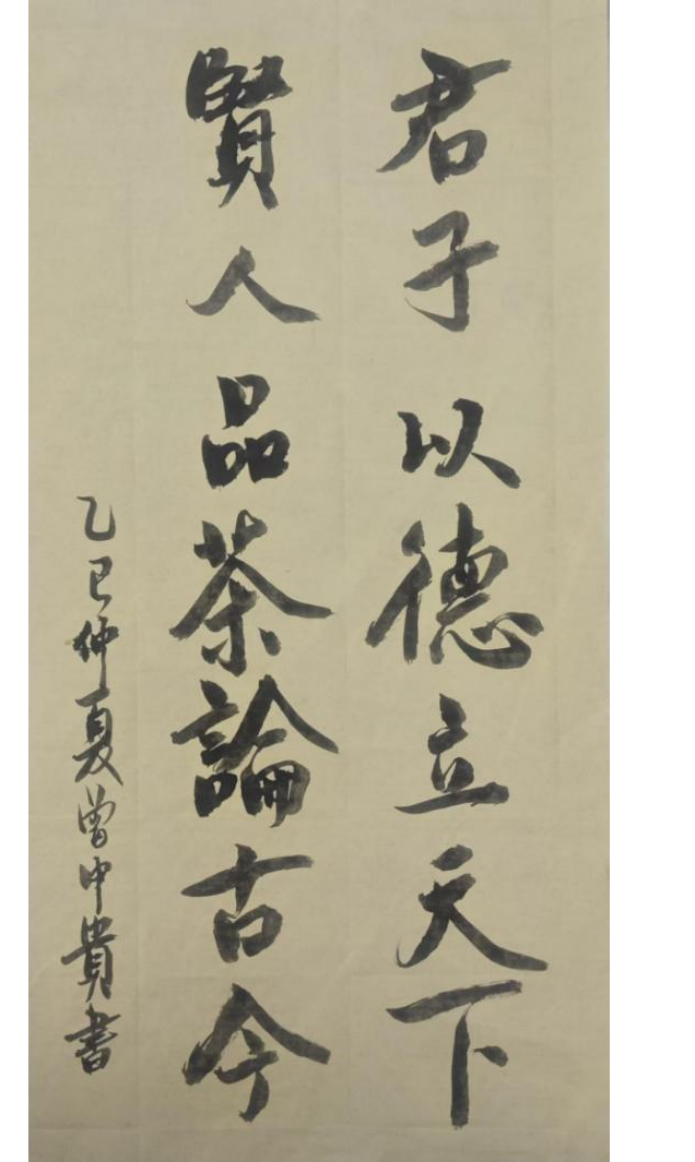 君子以德立天下
賢人品茶論古今
乙巳仲夏曾中貴書